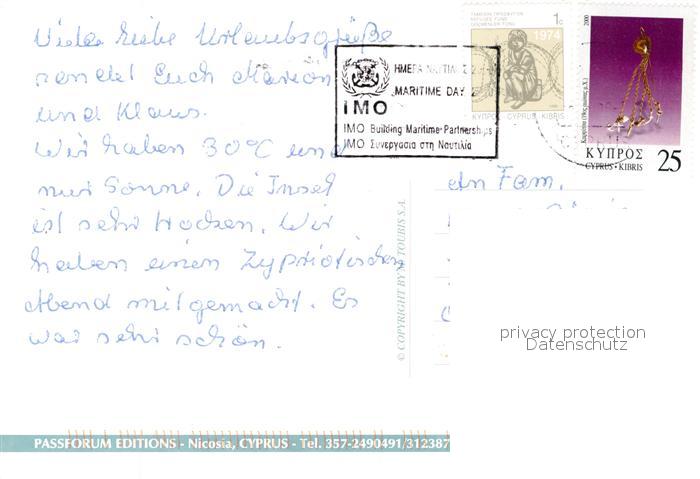 Viele liebe Urlaubsgrüße
sendet Euch Marion
und Klaus.
Wir haben 30°C und
nur Sonne. Die Insel
ist sehr trocken. Wir
haben einen Zypriotischen
Abend mitgemacht. Es
war sehr schön.
ΗΜΕΡΑ ΝΑΥΤΙΛΙΑΣ 2
MARITIME DAY 2
IMO
IMO Building Maritime Partnerships
IMO Συνεργασία στη Ναυτιλία
REFUGEE FUND
1c
1974
ΚΥΠΡΟΣ CYPRUS KIBRIS
2000
ΚΥΠΡΟΣ
CYPRUS • KIBRIS
25
An Fam.
© COPYRIGHT BY M. TOUBIS S.A.
privacy protection
Datenschutz
PASSFORUM EDITIONS - Nicosia, CYPRUS - Tel. 357-2490491/312387